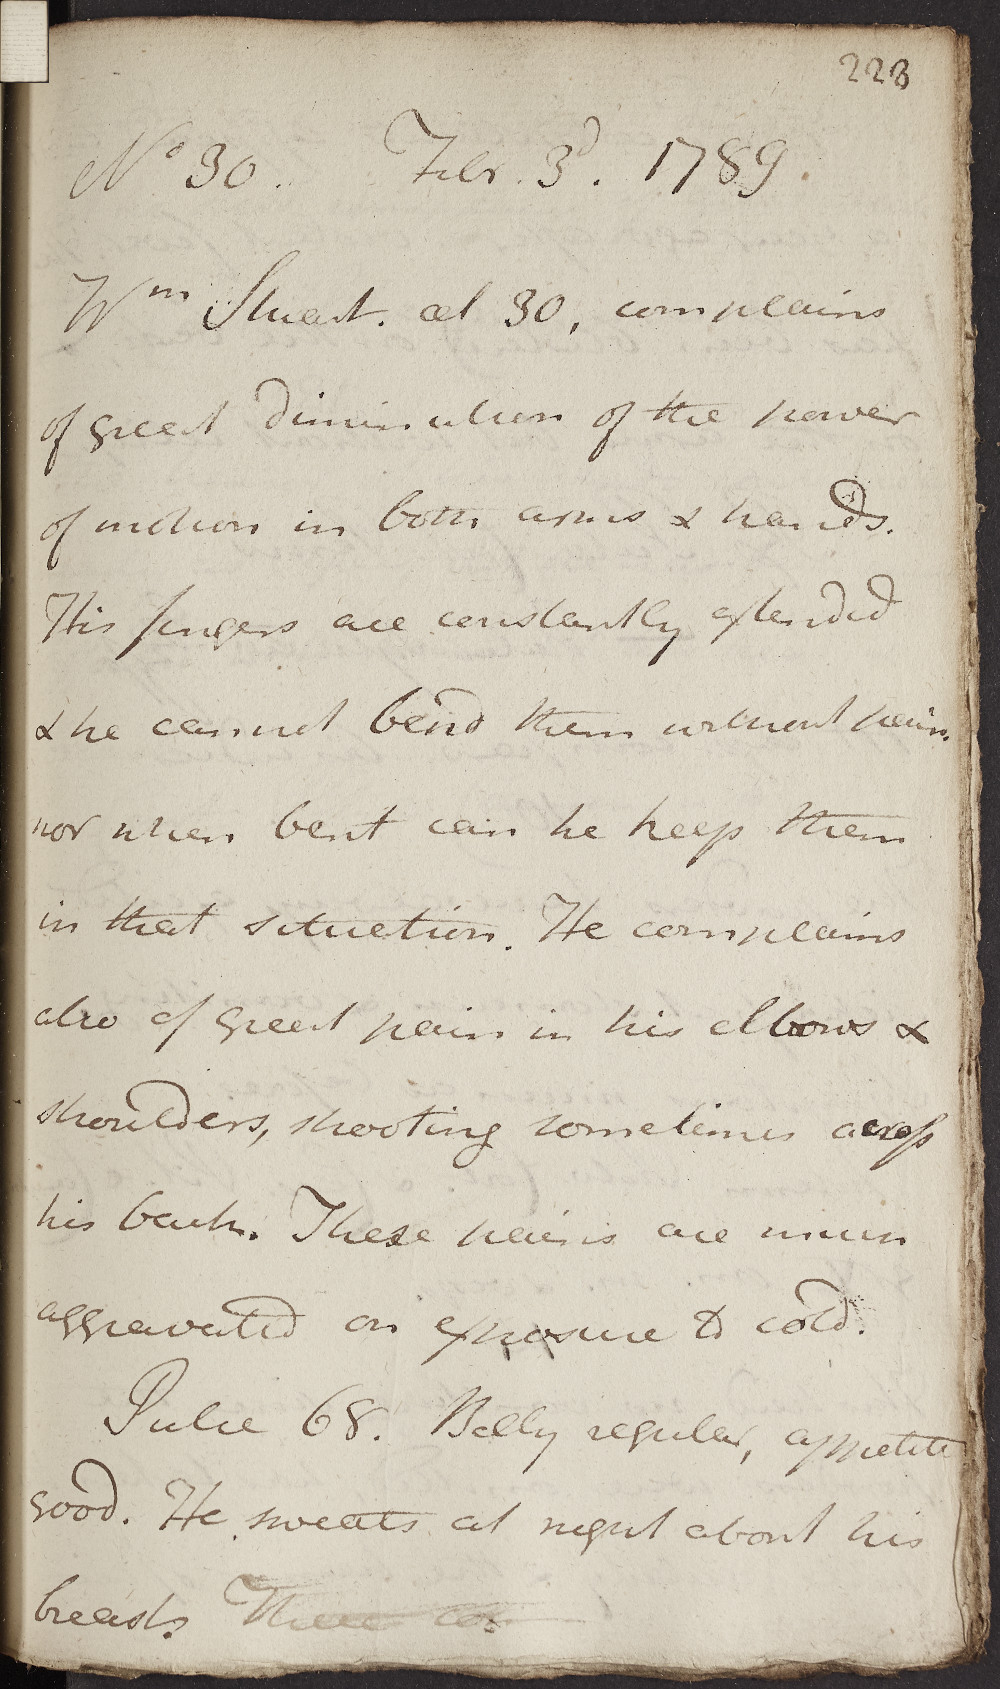 223
No 30. Febr. 3d. 1789.
Wm Stuart. aet 30, complains
of great diminution of the power
of motion in both arms & hands.
His fingers are constantly extended
& he cannot bend them without pain.
nor when bent can he keep them
in that situation. He complains
also of great pain in his elbows &
shoulders, shooting sometimes across
his back. These pains are much
aggravated on exposure to cold.
Pulse 68. Belly regular, appetite
good. He sweats at night about his
breast.